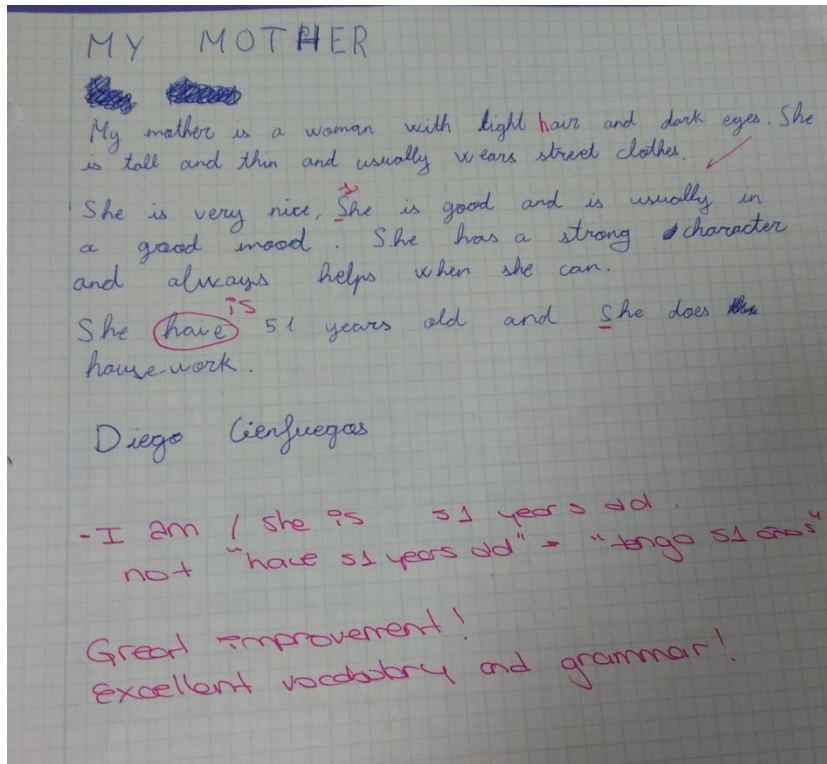 MY MOTHER
My mother is a woman with light hair and dark eyes. She
is tall and thin and usually wears street clothes.
s
She is very nice, She is good and is usually in
a good mood. She has a strong character
and always helps when she can.
is
She have 51 years old and She does
house-work.
Diego Cienfuegos
-I am / she is 51 years old.
not "have 51 years old" → "tengo 51 años"
Great improvement!
Excellent vocabulary and grammar!